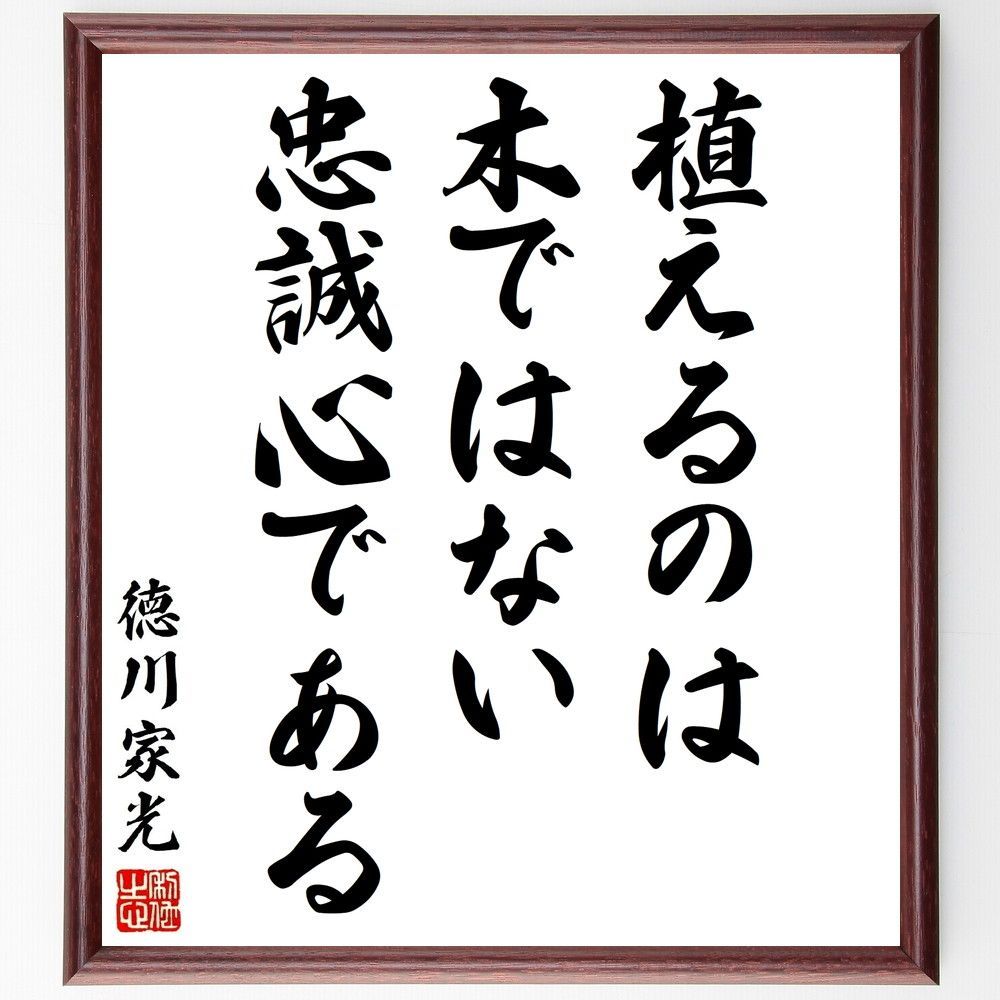 植えるのは
木ではない
忠誠心である
徳川家光